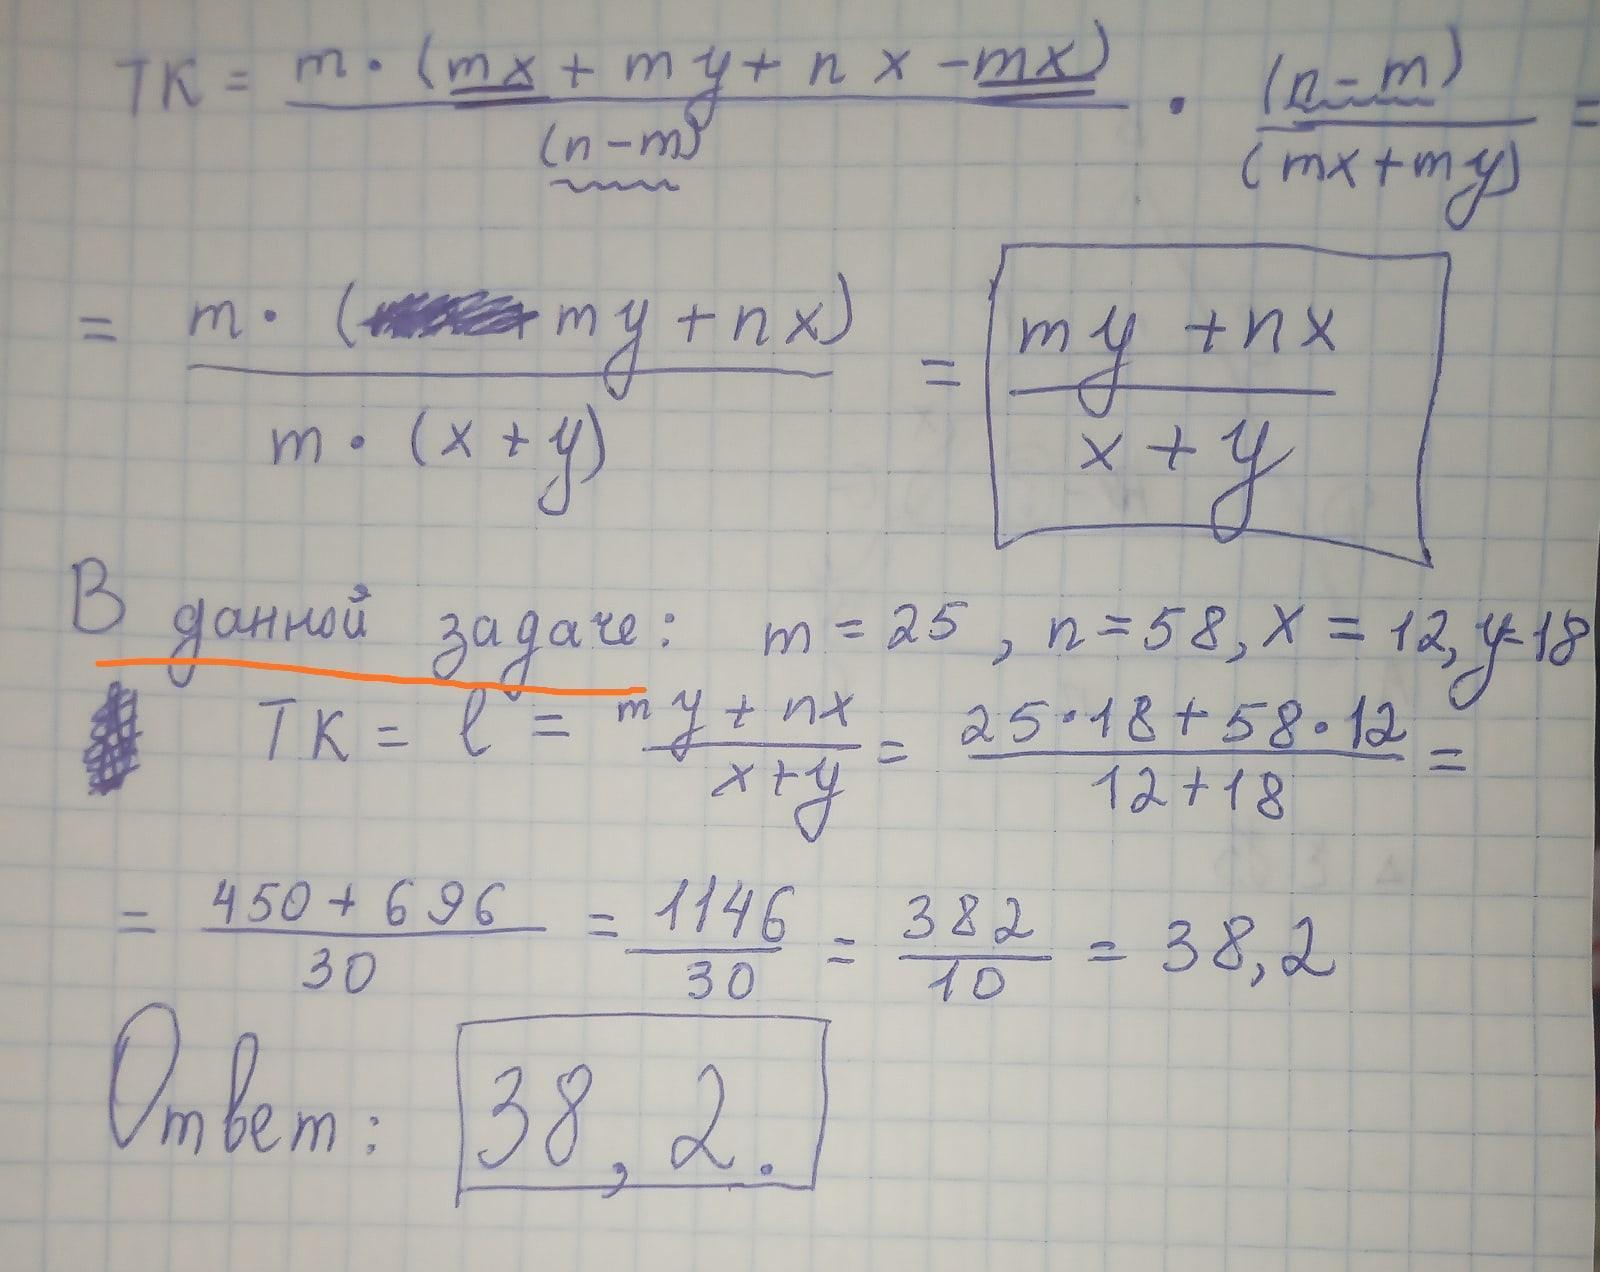 TK = m·(mx + my + nx − mx)/(n − m) · (n − m)/(mx + my) =
= m·(my + nx)/m·(x + y) = my + nx/x + y
В данной задаче: m = 25, n = 58, x = 12, y = 18
TK = l = my + nx/x + y = 25·18 + 58·12/12 + 18 =
= 450 + 696/30 = 1146/30 = 382/10 = 38,2
Ответ: 38,2.